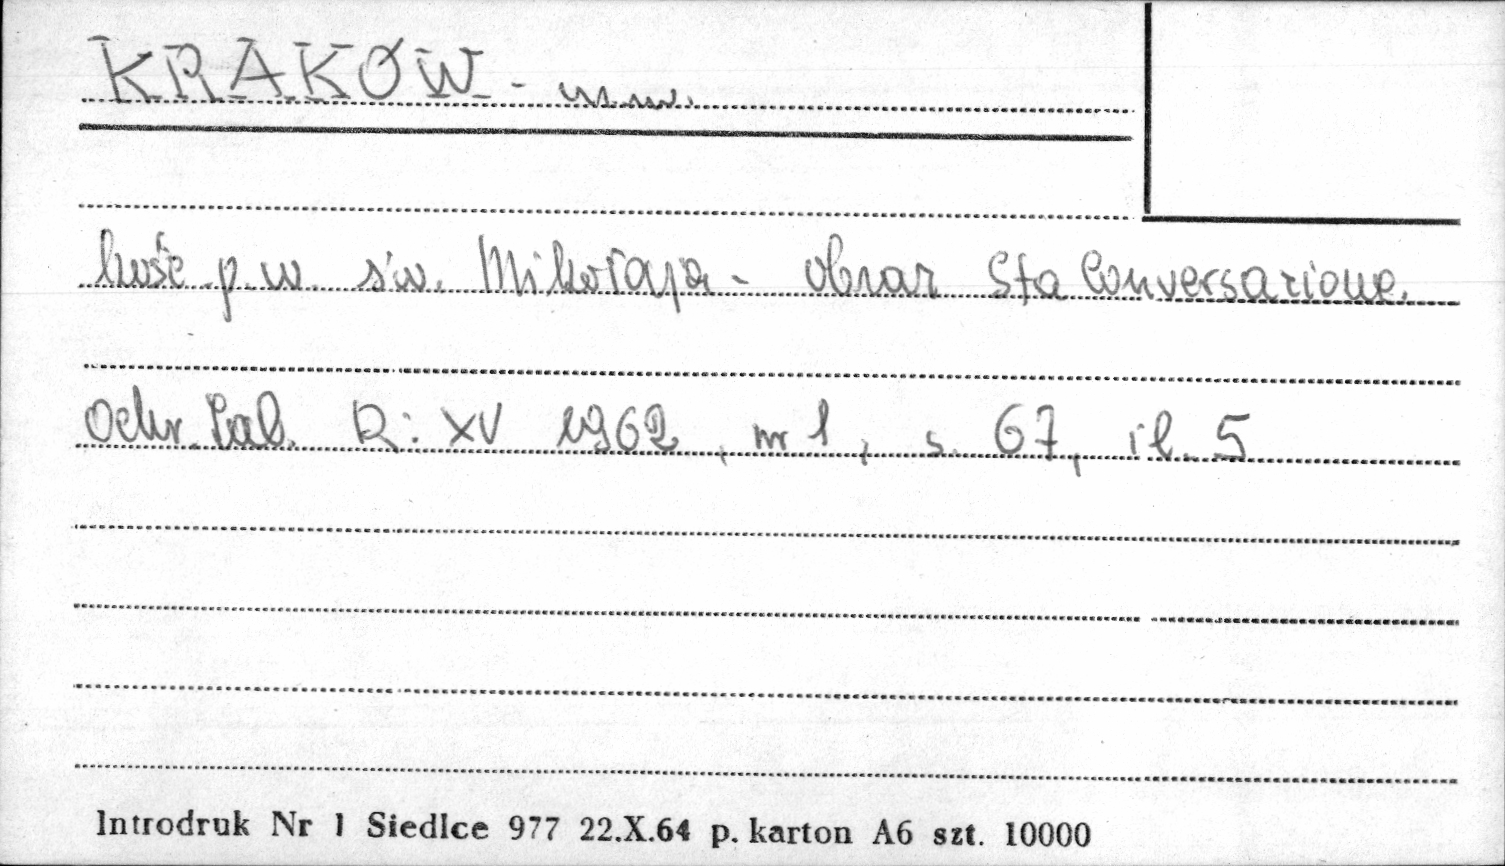 KRAKÓW - m.w.
kośc. p.w. św. Mikołaja - obraz Sta Conversazione.
Ochr. Zab. R: XV 1962, nr 1, s. 67, il. 5
Introdruk Nr 1 Siedlce 977 22.X.64 p. karton A6 szt. 10000